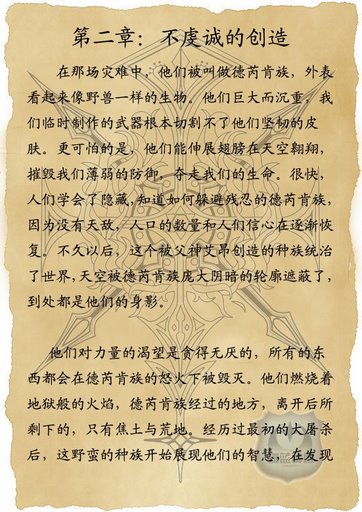 第二章：不虔诚的创造
在那场灾难中，他们被叫做德芮肯族，外表
看起来像野兽一样的生物。他们巨大而沉重，我
们临时制作的武器根本切割不了他们坚韧的皮
肤。更可怕的是，他们能伸展翅膀在天空翱翔，
摧毁我们薄弱的防御，夺走我们的生命。很快，
人们学会了隐藏，知道如何躲避残忍的德芮肯族，
因为没有天敌，人口的数量和人们信心在逐渐恢
复。不久以后，这个被父神艾昂创造的种族统治
了世界，天空被德芮肯族庞大阴暗的轮廓遮蔽了，
到处都是他们的身影。
他们对力量的渴望是贪得无厌的，所有的东
西都会在德芮肯族的怒火下被毁灭。他们燃烧着
地狱般的火焰，德芮肯族经过的地方，离开后所
剩下的，只有焦土与荒地。经历过最初的大屠杀
后，这野蛮的种族开始展现他们的智慧，在发现